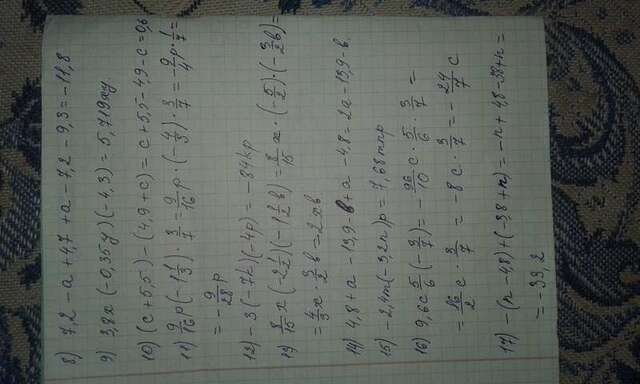 8) 7,2 - a + 4,7 + a - 7,2 - 9,3 = -11,8
9) 3,8x (-0,35y)(-4,3) = 5,719xy
10) (c + 5,5) - (4,9 + c) = c + 5,5 - 4,9 - c = 0,6
11) 9/16 p (-1 1/3) · 3/7 = 9/16 p · (-4/3) · 3/7 = -9/4 p · 1/7 =
= -9/28 p
12) -3 (-7k)(-4p) = -84kp
13) 8/15 x (-2 1/2)(-1 1/2 в) = 8/15 x · (-5/2) · (-3/2 в) =
= 4/3 x · 3/2 в = 2xв
14) 4,8 + a - 13,9 - в + a - 4,8 = 2a - 13,9 - в.
15) -2,4m (-3,2n) p = 7,68mnp
16) 9,6c 5/6 (-3/7) = -96/10 c · 5/6 · 3/7 =
= 16/2 c · 3/7 = -8c · 3/7 = -24/7 c
17) -(n - 4,8) + (-3,8 + n) = -n + 4,8 - 38 + n =
= -33,2